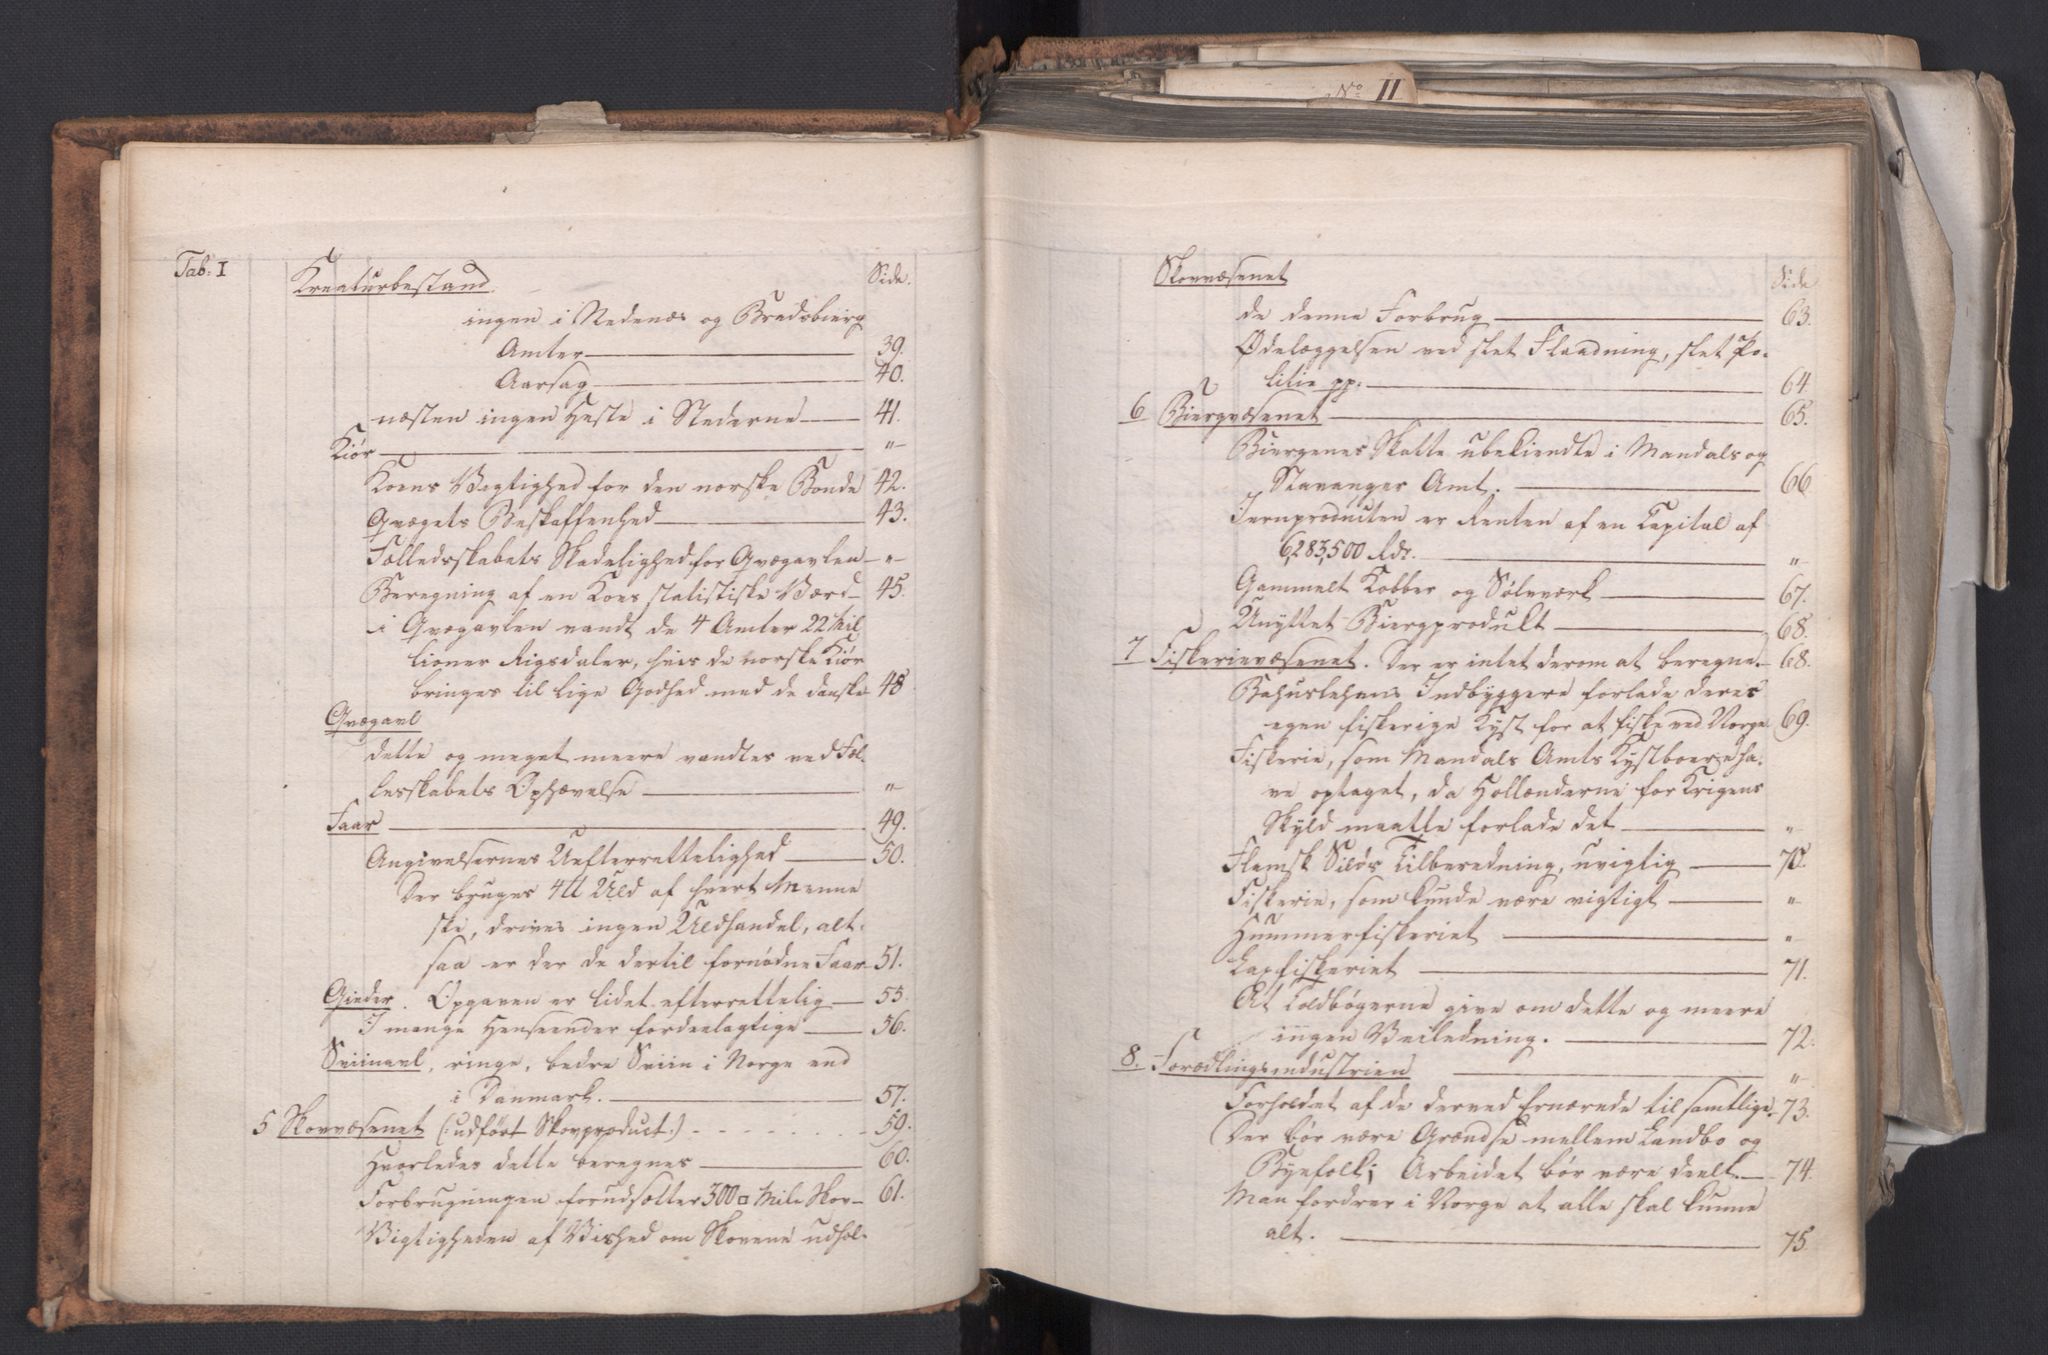 No II
Tab: I
Kreaturbestand
Side.
ingen i Nedenæs og Bradsbierg
Amter 39.
Aarsag 40.
næsten ingen Heste i Stederne 41.
Kiør "
Koens Vigtighed for den norske Bonde 42.
Qvægets Beskaffenhed 43.
Fælledsskabets Skadelighed for Qvægavlen "
Beregning af en Koes statistiske Værd 45.
i Qvægavlen vandt de 4 Amter 22 Mil
lioner Rigsdaler, hvis de norske Kiør
bringes til lige Godhed med de danske 48
Qvægavl
dette og meget meere vandtes ved Fæl-
lesskabets Ophævelse "
Faar 49.
Angivelsernes Uefterrettelighed 50.
Der bruges 4 ℔ Uld af hvert Menne
ske, drives ingen Uldhandel, alt-
saa er der de dertil fornødne Faar 51.
Gieder. Opgaven er lidet efterrettelig 55.
I mange Henseender fordeelagtige 56.
Sviinavl, ringe, bedre Sviin i Norge end
i Danmark. 57.
5 Skovvæsenet (: udført Skovproduct.) 59.
Hvorledes dette beregnes 60.
Forbrugningen forudsætter 300 □ Mile Skov 61.
Vigtigheden af Vished om Skovene udhol-
Skovvæsenet
Side
de denne Forbrug 63.
Ødelæggelsen ved slet Flaadning, slet Po-
litie pp. 64
6 Biergvæsenet 65.
Biergenes Skatte ubekiendte i Mandals og
Stavanger Amt. 66
Jernproducten er Renten af en Capital af
6,283,500 Rdr. "
Gammelt Kobber og Sølvværk 67.
Unyttet Biergprodukt 68.
7 Fiskerievæsenet. Der er intet derom at beregne. 68.
Bahuslehens Indbyggere forlade deres
egen fiskerige Kyst for at fiske ved Norge 69.
Fiskerie, som Mandals Amts Kystboere ha-
ve optaget, da Hollænderne for Krigens
Skyld maatte forlade det "
Flamsk Silds Tilberedning, uvigtig 70.
Fiskerie, som kunde være vigtigt "
Hummerfiskeriet "
Laxfiskeriet 71.
At Toldbøgerne give om dette og meere
ingen Veiledning. 72.
8. Forædlingsindustrien "
Forholdet af de derved Ernærede til samtlige 73.
Der bør være Grændse mellem Landbo og
Byefolk; Arbeidet bør være deelt. 74.
Man fordrer i Norge at alle skal kunne
alt. 75.